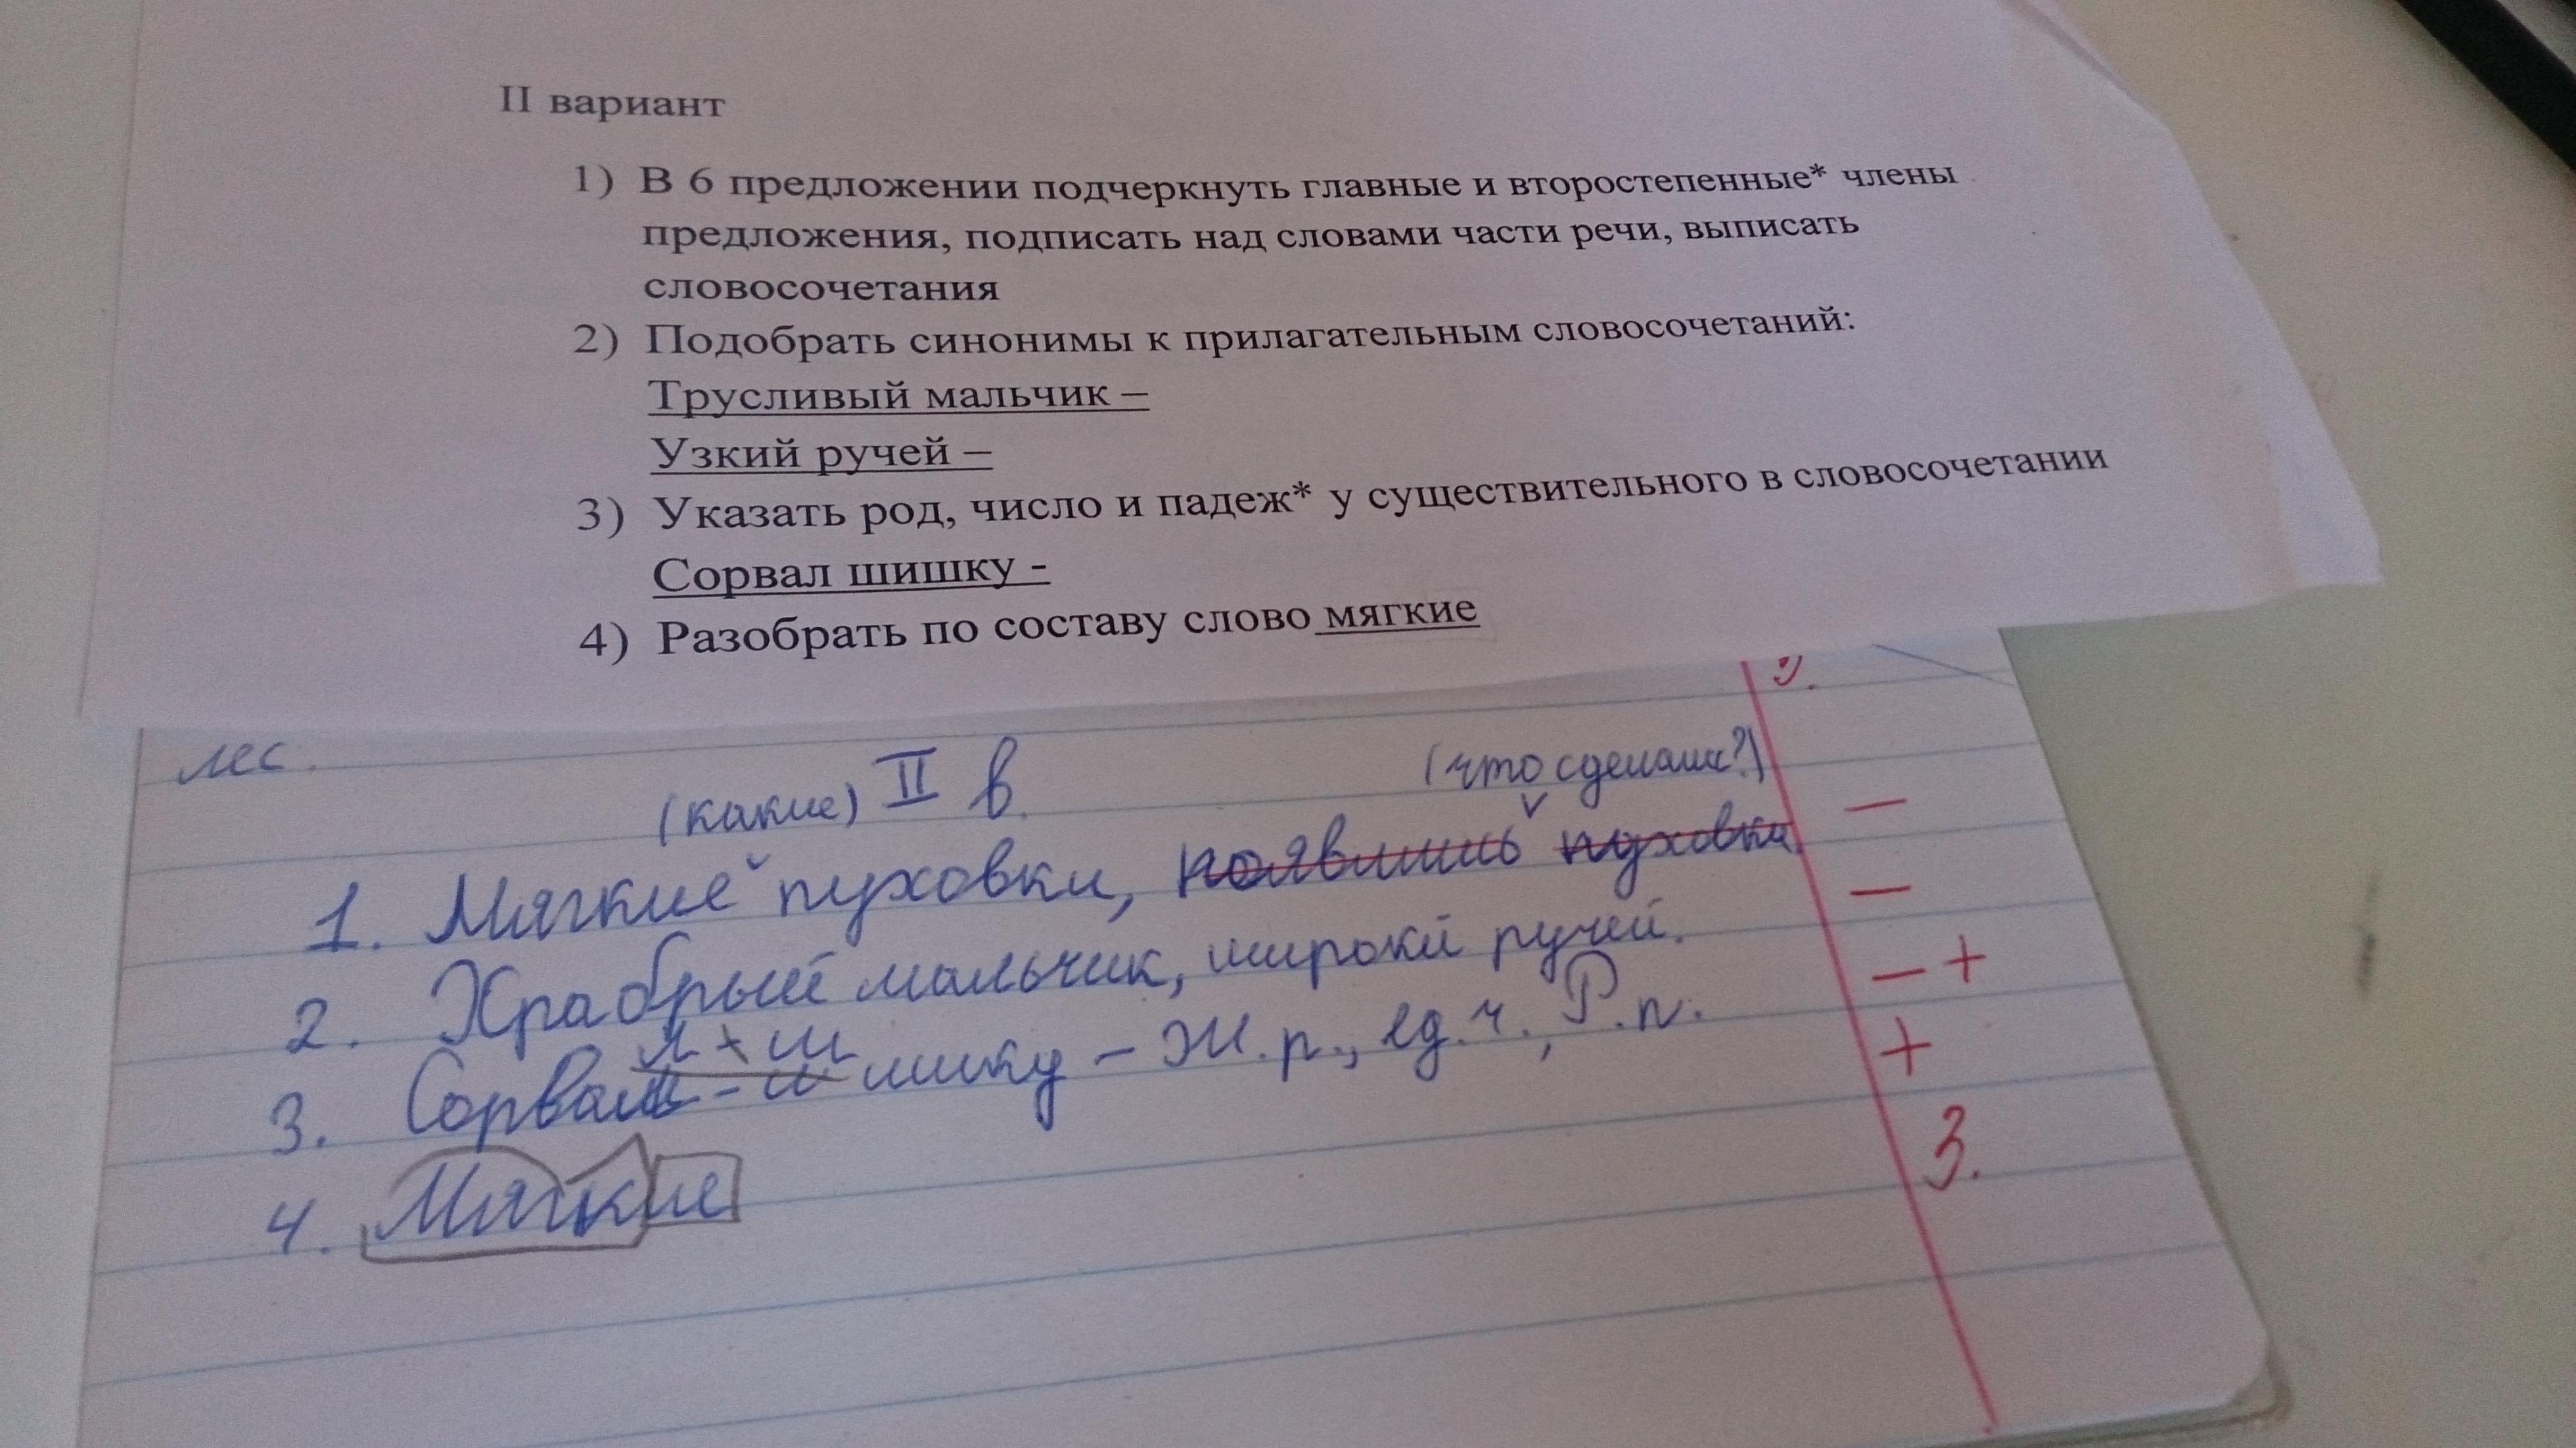 II вариант
1) В 6 предложении подчеркнуть главные и второстепенные* члены
предложения, подписать над словами части речи, выписать
словосочетания
2) Подобрать синонимы к прилагательным словосочетаний:
Трусливый мальчик –
Узкий ручей –
3) Указать род, число и падеж* у существительного в словосочетании
Сорвал шишку -
4) Разобрать по составу слово мягкие
лес.
(какие) II в. (что сделали?)
1. Мягкие пуховки, появились пуховки. –
2. Храбрый мальчик, широкй ручей. –
3. Сорвал шишку – Ж.р., ед.ч., Р.п. – +
4. Мягкие +
3.